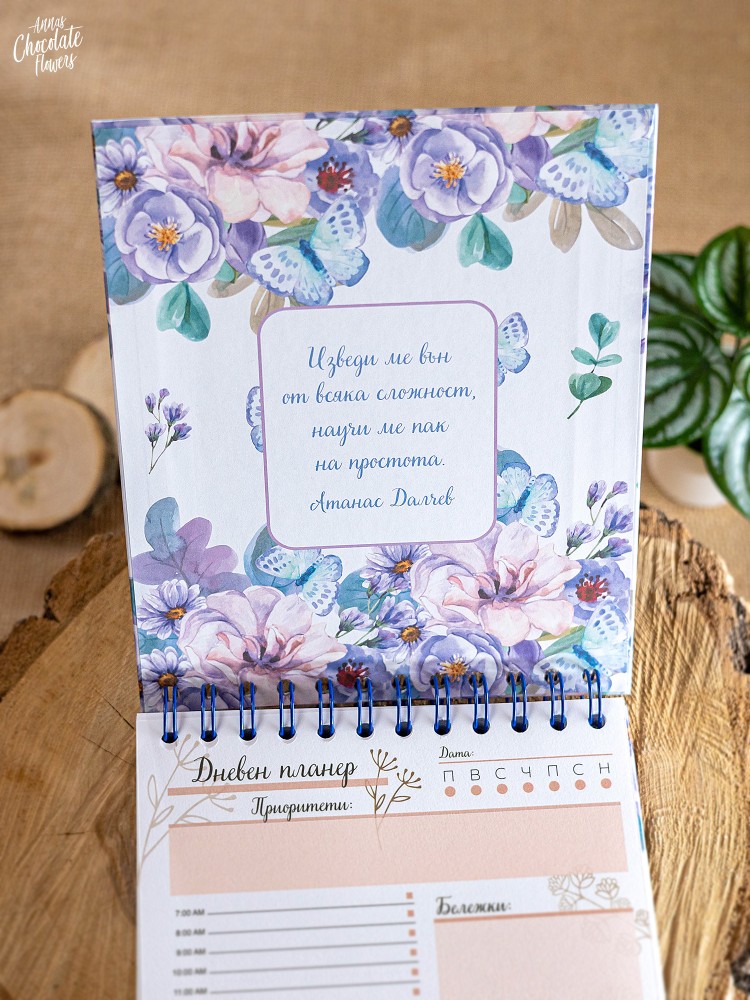 Annas
Chocolate
Flowers
Изведи ме вън
от всяка сложност,
научи ме пак
на простота.
Атанас Далчев
Дневен планер
Дата:
П В С Ч П С Н
Приоритети:
7:00 AM
8:00 AM
9:00 AM
10:00 AM
11:00 AM
Бележки: